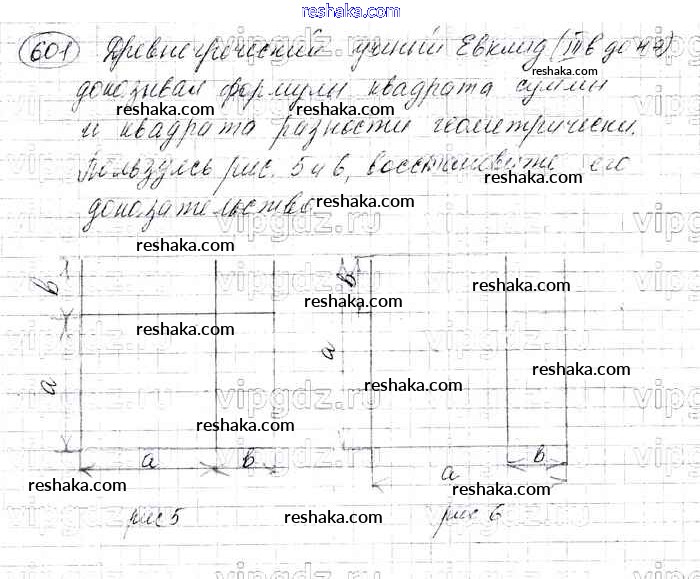 reshaka.com
601 Древнегреческий учёный Евклид (III в до н э)
доказывал формулы квадрата суммы
и квадрата разности геометрически.
Пользуясь рис. 5 и 6, восстановите его
доказательство.
reshaka.com
reshaka.com
reshaka.com
reshaka.com
reshaka.com
vipgdz.ru
vipgdz.ru
в
в
reshaka.com
reshaka.com
reshaka.com
vipgdz.ru
а
а
reshaka.com
reshaka.com
reshaka.com
vipgdz.ru
а
в
в
а
reshaka.com
reshaka.com
vipgdz.ru
рис 5
reshaka.com
рис 6